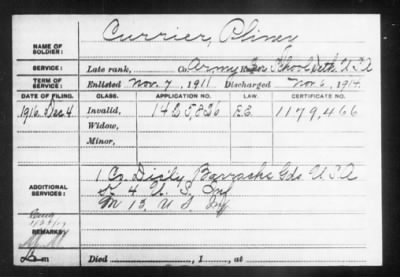 NAME OF SOLDIER: Currier, Pliny
SERVICE: Late rank, Co. Army School Det. U.S.A
TERM OF SERVICE: Enlisted Nov. 7, 1911. Discharged Nov. 6, 1914.
DATE OF FILING. CLASS. APPLICATION NO. LAW. CERTIFICATE NO.
1916. Dec. 4 Invalid, 1425,826 1179,466
Widow,
Minor,
ADDITIONAL SERVICES: 1 Co. Barracks Gds U.S.A
4 U. S. Inf
M 13, U. S.
REMARKS:
Died , 1 , at